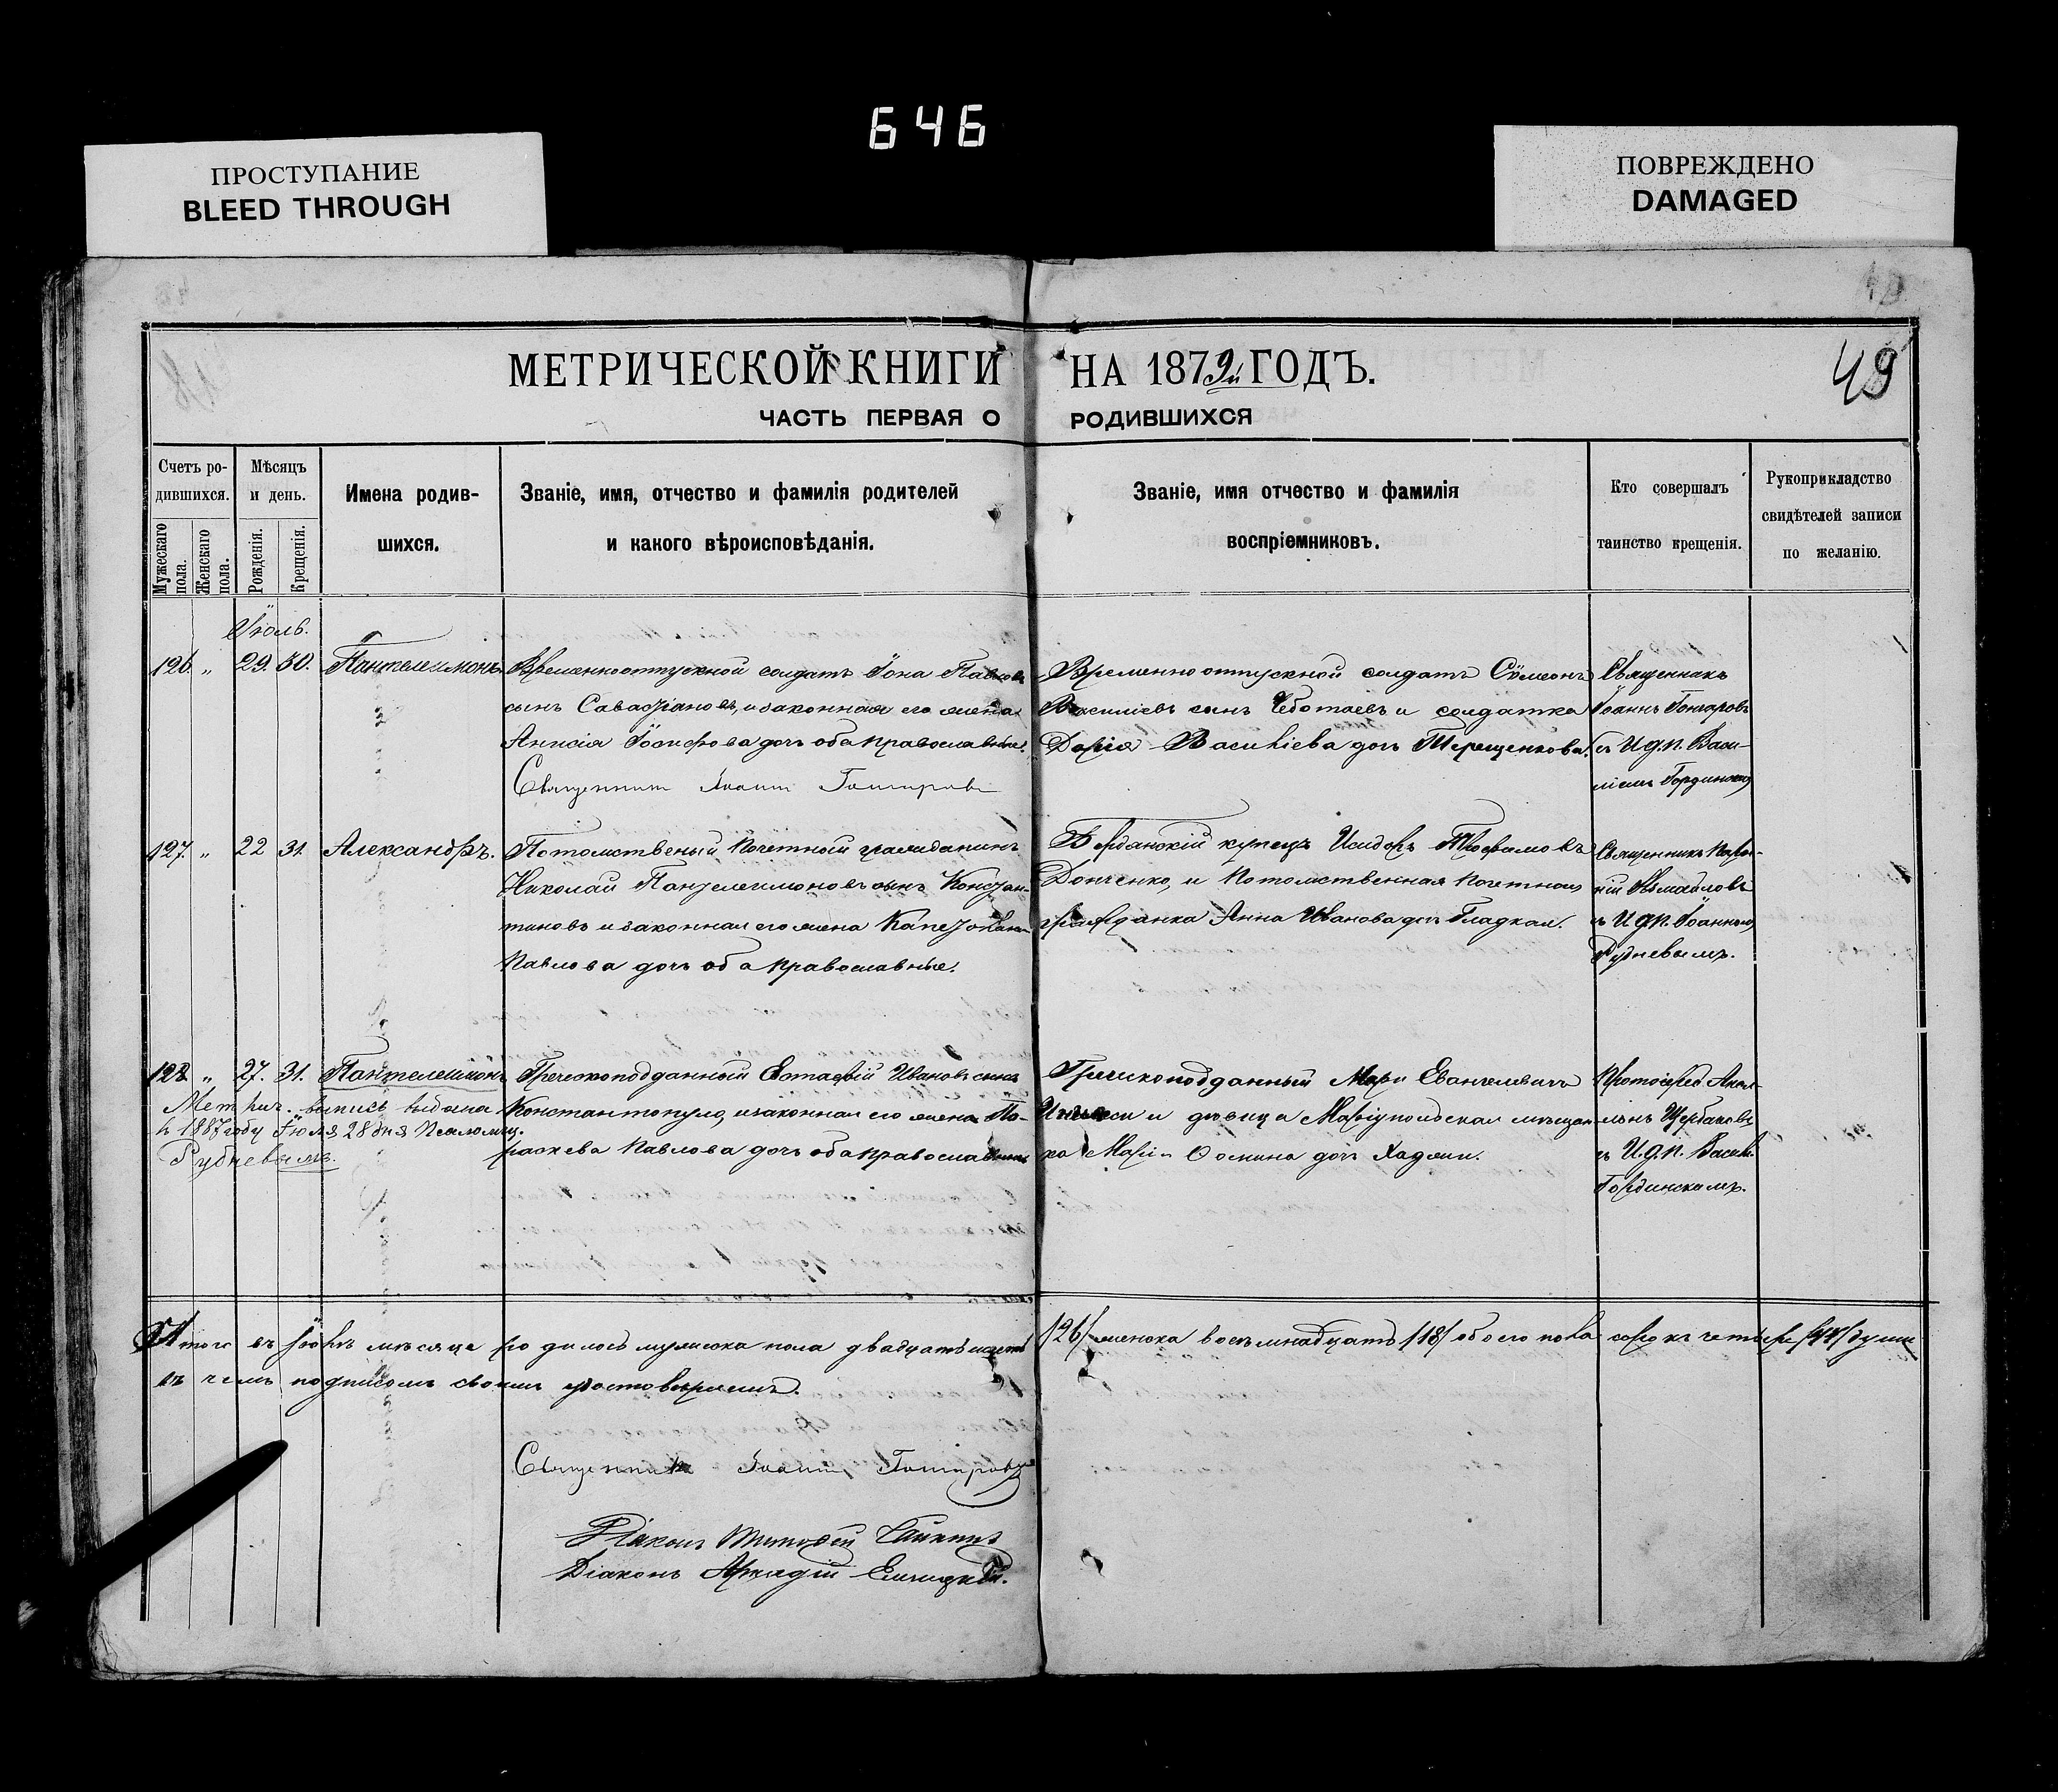 646
ПРОСТУПАНИЕ
BLEED THROUGH
ПОВРЕЖДЕНО
DAMAGED
МЕТРИЧЕСКОЙ КНИГИ НА 1879й ГОДЪ.
49
ЧАСТЬ ПЕРВАЯ О РОДИВШИХСЯ
Счетъ ро-
дившихся.
Мужескаго пола.
Женскаго пола.
Мѣсяцъ
и день.
Рожденія.
Крещенія.
Имена родив-
шихся.
Званіе, имя, отчество и фамилія родителей
и какого вѣроисповѣданія.
Званіе, имя отчество и фамилія
воспріемниковъ.
Кто совершалъ
таинство крещенія.
Рукоприкладство
свидѣтелей записи
по желанію.
Іюль.
126. „ 29. 30. Пантелеимонъ
Временноотпускной солдатъ Іона Павловъ
сынъ Савастіановъ, и законная его жена
Анисія Іосифова дочь оба православные.
Священникъ Іоаннъ Гончаровъ
Временно отпускной солдатъ Сѵмеонъ
Василіевъ сынъ Чеботаевъ и солдатка
Дарія Василіева дочь Терещенкова.
Священникъ
Іоаннъ Гончаровъ
съ И.д.п. Васи-
ліемъ
127. „ 22 31. Александръ.
Потомственый почетный гражданинъ
Николай Пантелеимоновъ сынъ Констан-
тиновъ и законная его жена
Павлова дочь оба православные.
Бердянскій купецъ Исидоръ
Донченко, и потомственная почетная
гражданка Анна Иванова дочь Гладкая.
Священникъ
Измайловъ
съ И.д.п. Іоанномъ
Рудневымъ.
128 „ 27. 31. Пантелеимонъ
Метрич. выпись выдана
въ 1887 году Іюля 28 дня Псаломщ.
Рудневымъ.
Греческоподданный Евстафій Ивановъ сынъ
Константопуло, и законная его жена Па-
раскева Павлова дочь оба православные
Греческоподданный Мари Евангелевичъ
и дѣвица Маріупольская мѣщан-
ка Марія Ѳомина дочь Хаджи.
Протоіерей
Щербаковъ
съ И.д.п. Васил.
Гординскимъ.
Итого въ Іюлѣ мѣсяце родилось мужеска пола двадцать шесть /26/ женска восемнадцать /18/ обоего пола сорокъ четыре /44/ души
въ чемъ подписомъ своимъ удостовѣряемъ.
Священникъ Іоаннъ Гончаровъ
Діаконъ
Діаконъ Аркадій